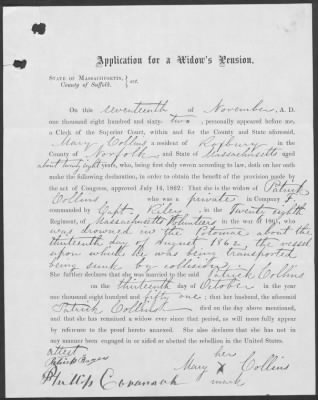 Application for a Widow's Pension.
STATE OF MASSACHUSETTS,
County of Suffolk. } ss.
On this seventeenth of November, A. D.
one thousand eight hundred and sixty-two, personally appeared before me,
a Clerk of the Superior Court, within and for the County and State aforesaid,
Mary Collins a resident of Roxbury in the
County of Norfolk and State of Massachusetts aged
about twenty eight years, who, being first duly sworn according to law, doth on her oath
make the following declaration, in order to obtain the benefit of the provision made by
the act of Congress, approved July 14, 1862: That she is the widow of Patrick
Collins who was a private in Company F,
commanded by Capt. in the Twenty eighth
Regiment, of Massachusetts Volunteers in the war of 1861, who
was drowned in the Potomac about the
thirteenth day of August 1862, the vessel
upon which he was being transported
being sunk by collision
She further declares that she was married to the said Patrick Collins
on the thirteenth day of October in the year
one thousand eight hundred and fifty one; that her husband, the aforesaid
Patrick Collins died on the day above mentioned,
and that she has remained a widow ever since that period, as will more fully appear
by reference to the proof hereto annexed. She also declares that she has not in
any manner been engaged in or aided or abetted the rebellion in the United States.
attest
her
Mary X Collins
mark
Phillip Cavanagh